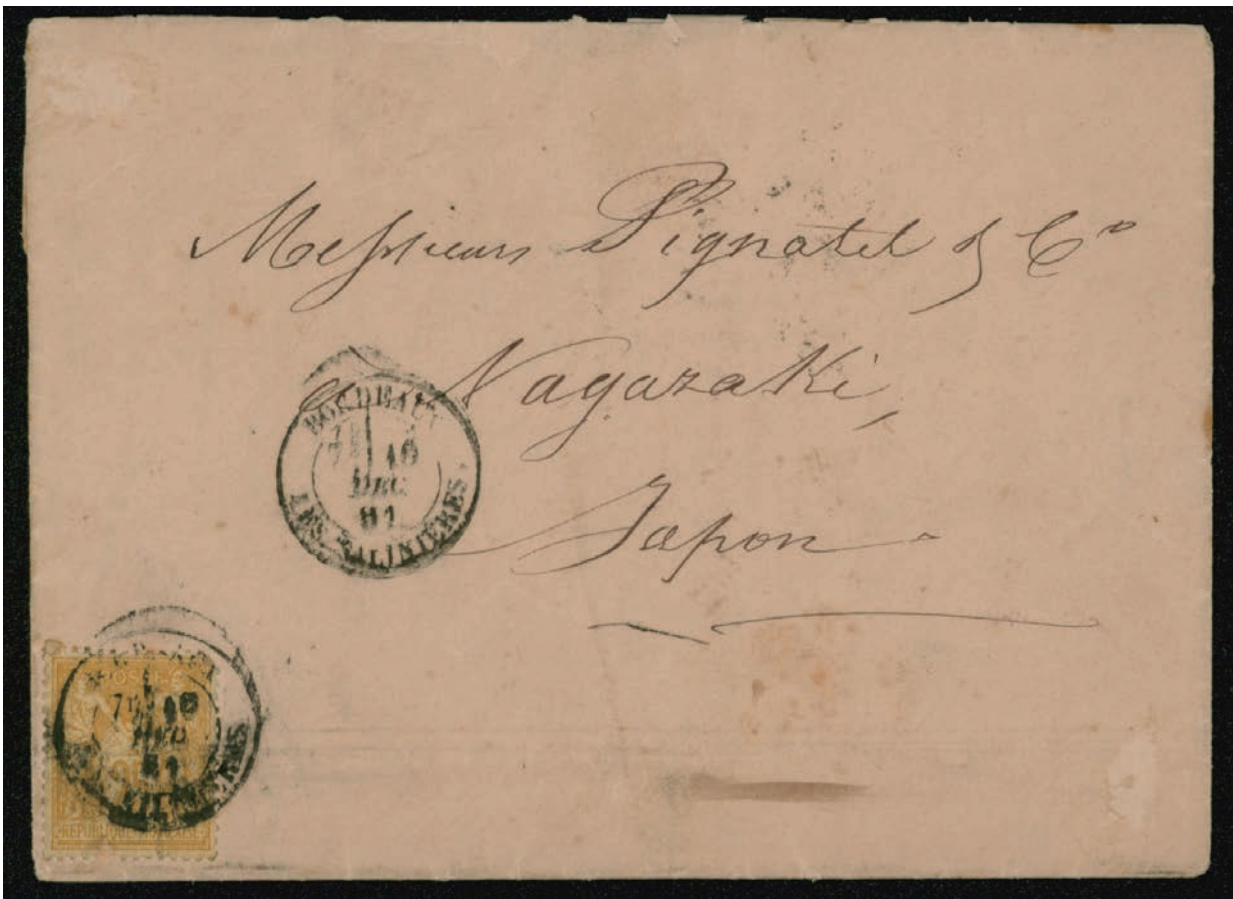 Messieurs Pignatel & Co
a Nagazaki,
Japon
BORDEAUX
7E 16
DEC
81
LES SALINIÈRES
POSTES
7E
DEC
81
REPUBLIQUE